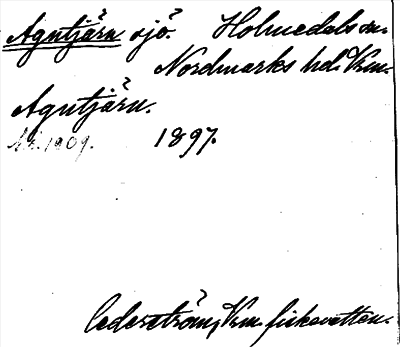 Agntjärn sjö. Holmedals sn.
Nordmarks hd. Vrm.
Agntjärn.
1909. 1897.
Cederström, Vrm. fiskevatten.